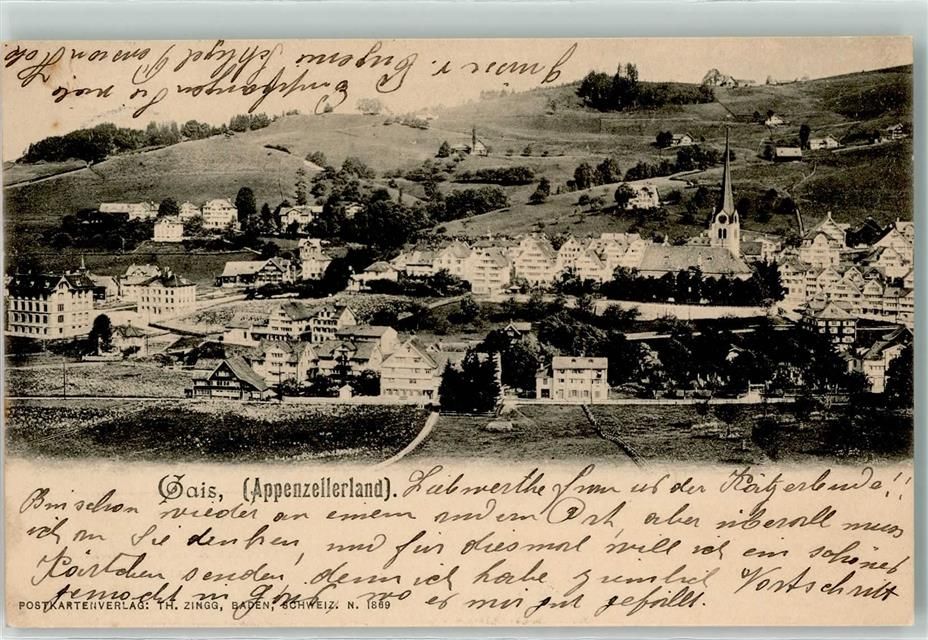 Gais, (Appenzellerland). Liebwerthe Frau us der Kätzerbude!!
Bin schon wieder an einem andern Ort, aber überall muss
ich an Sie denken, und für diesmal will ich ein schönes
Kärtchen senden, denn ich habe ziemlich Vortschritt
gemacht in Gais, wo es mir gut gefällt.
POSTKARTENVERLAG: TH. ZINGG, BADEN, SCHWEIZ. N. 1869
Empfangen Sie noch
Eugene Schlegel